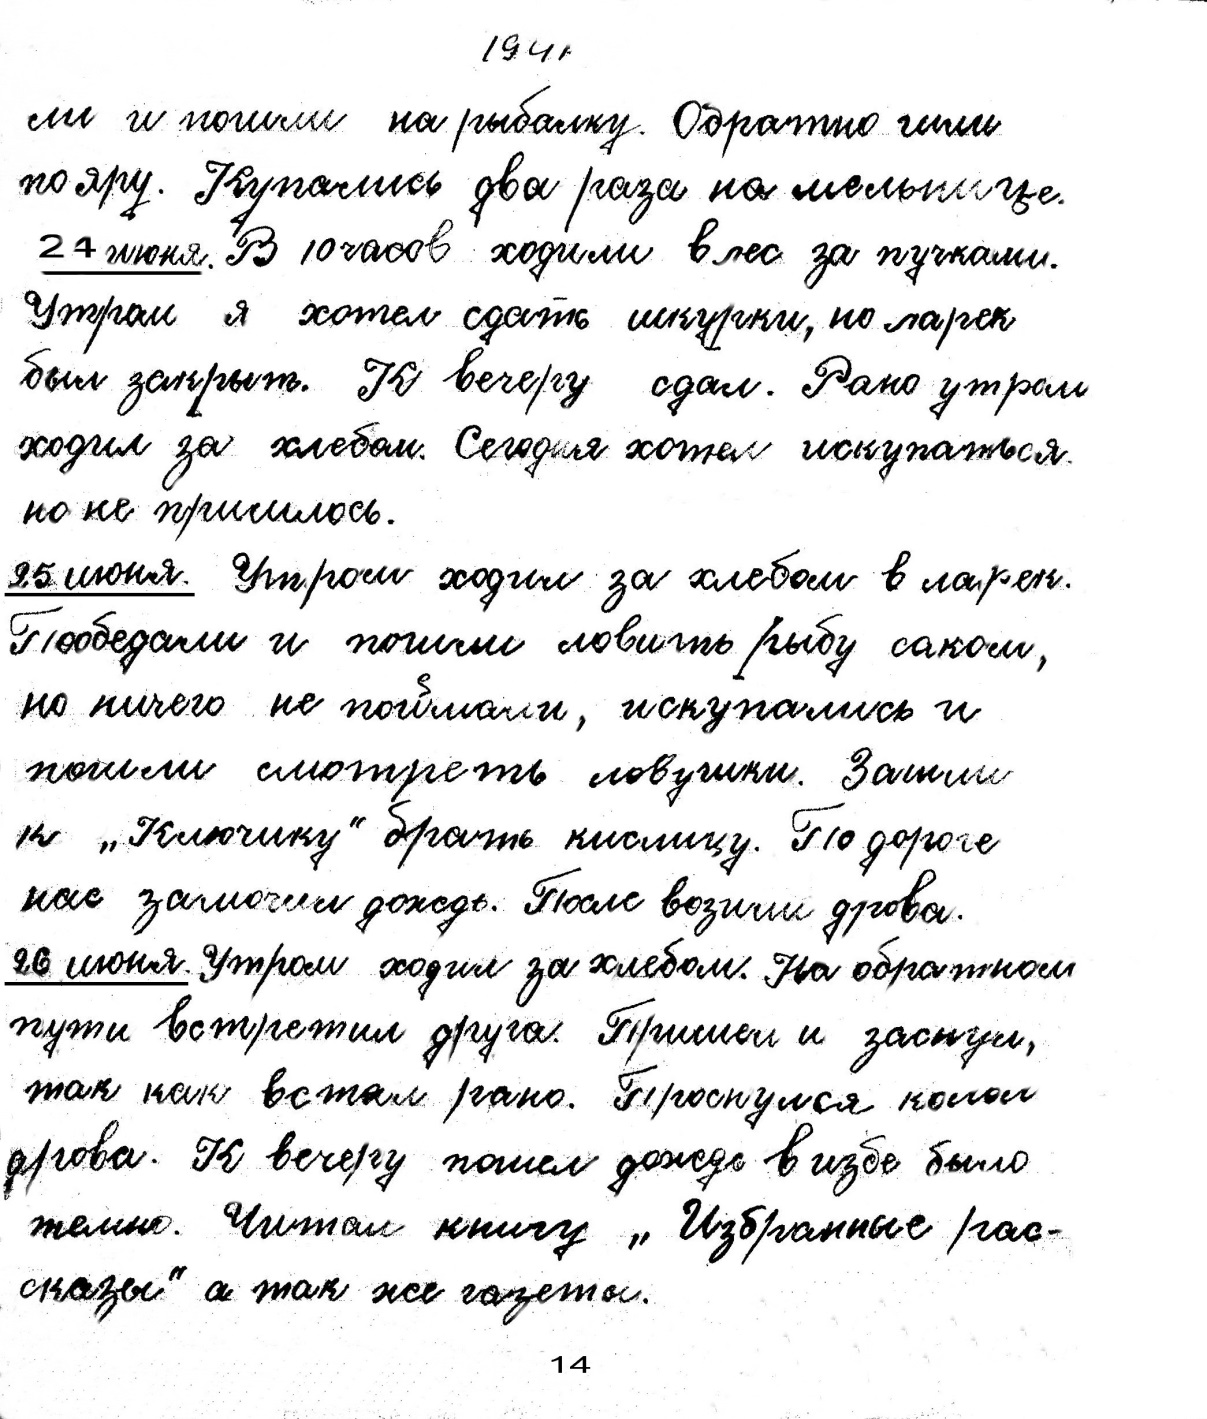 1941
ли и пошли на рыбалку. Обратно шли
по яру. Купались два раза на мельнице.
24 июня. В 10 часов ходили в лес за пучками.
Утром я хотел сдать шкурки, но ларек
был закрыт. К вечеру сдал. Рано утром
ходил за хлебом. Сегодня хотел искупаться
но не пришлось.
25 июня. Утром ходил за хлебом в ларек.
Пообедали и пошли ловить рыбу саком,
но ничего не поймали, искупались и
пошли смотреть ловушки. Зашли
к „Ключику" брать кислицу. По дороге
нас замочил дождь. После возили дрова.
26 июня. Утром ходил за хлебом. На обратном
пути встретил друга. Пришел и заснул,
так как встал рано. Проснулся колол
дрова. К вечеру пошел дождь в избе было
темно. Читал книгу „Избранные рас-
сказы" а так же газеты.
14